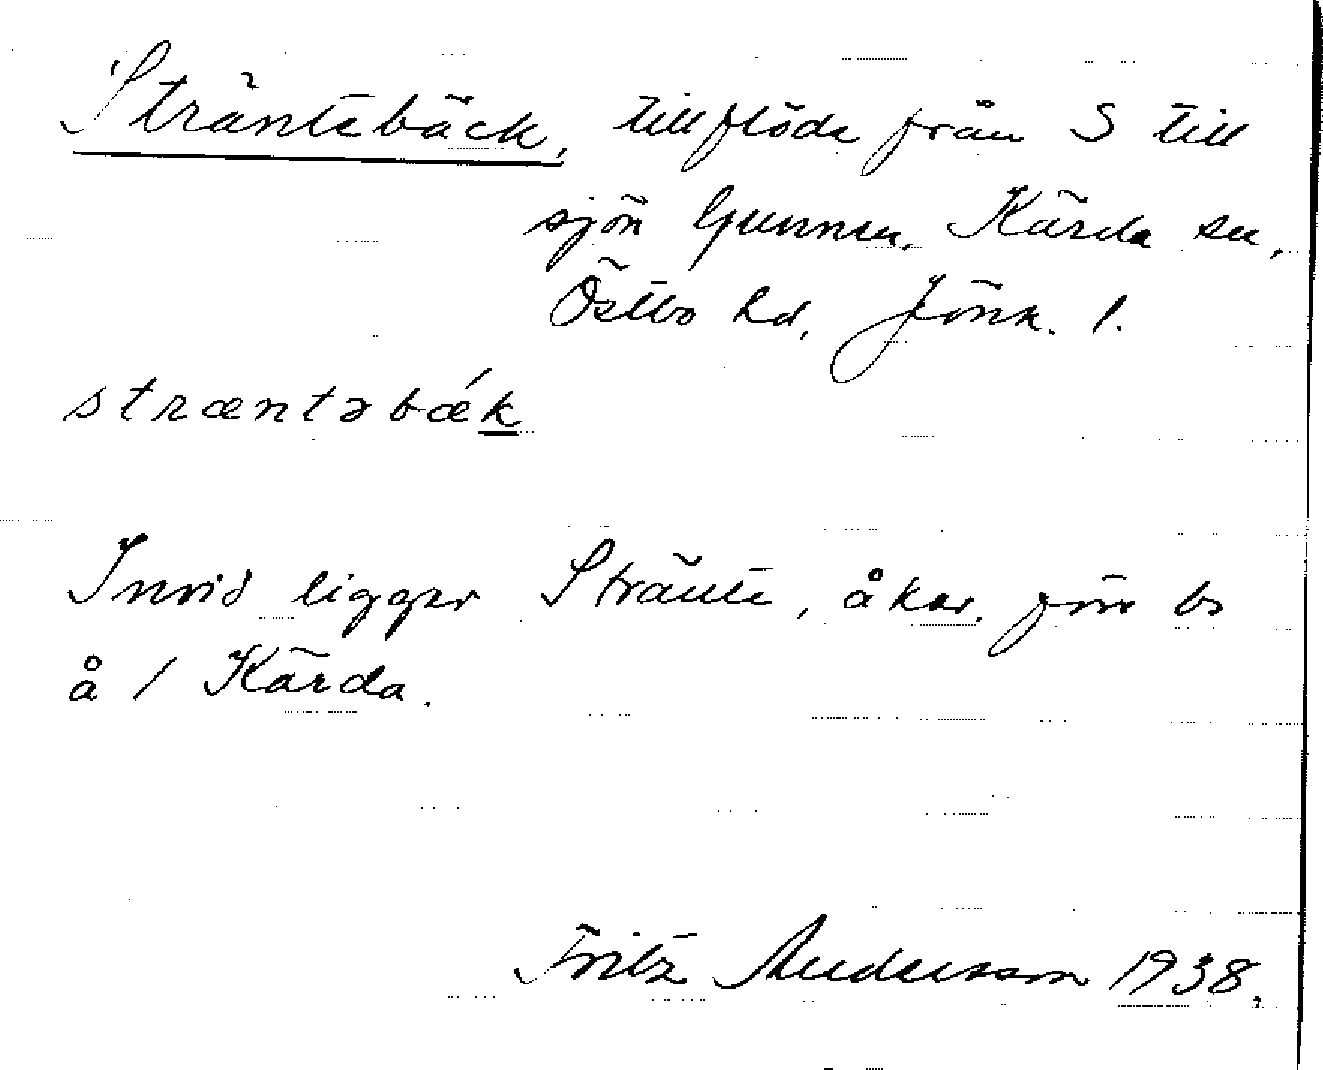 Sträntebäck, tillflöde från S till
sjön Gunnen, Kärda sn,
Östbo hd, Jönk. l.
stræntəbǽk
Invid ligger Stränte, åker, förr bs
å / Kärda.
Fritz Andersson 1938.